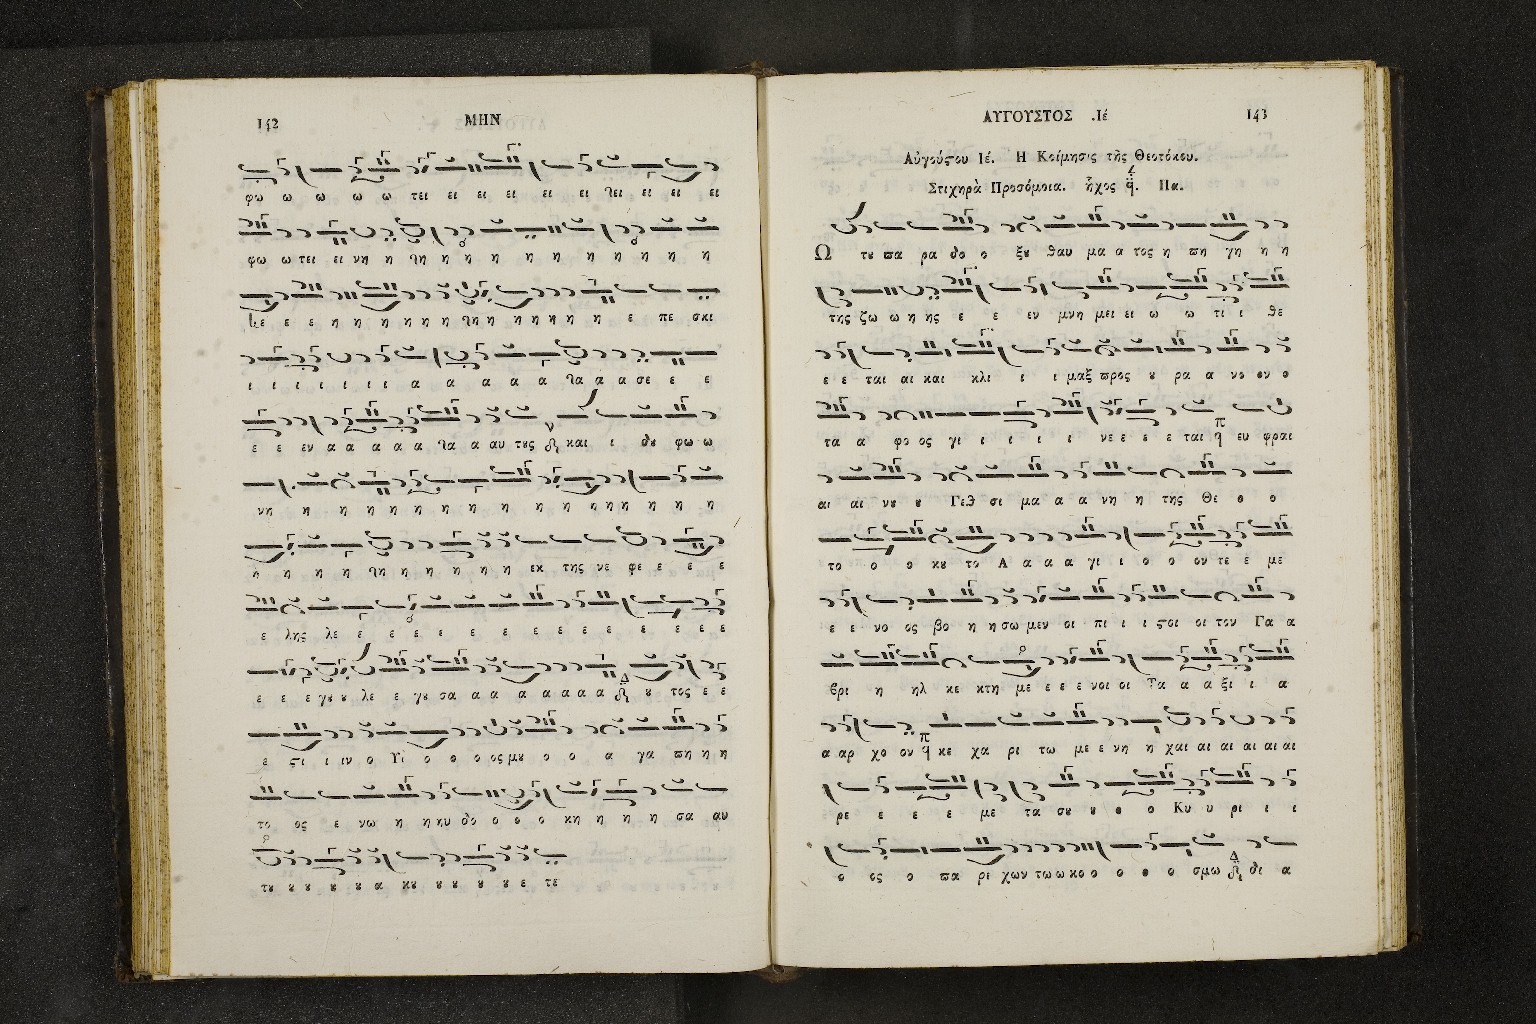 142
ΜΗΝ
φω ω ω ω ω τει ει ει ει ει ει ει ει ει ει
φω ω τει ει νη η η η η η η η η η η η
ε ε ε η η η η η η η η η η η η ε πε σκι
ι ι ι ι ι ι ι α α α α α α α α σε ε ε
ε ε εν α α α α α α α α αυ τους και ι δου φω ω
νη η η η η η η η η η η η η η η η
η η η η η η η η η η εκ της νε φε ε ε ε
ε λης λε ε ε ε ε ε ε ε ε ε ε ε ε ε
ε ε ε γου ου λε ε γου σα α α α α α α α ου τος ε ε
ε ϛι ι ιν ο Υι ο ο ο ος μου ο ο α γα πη η η
το ος ε νω η η ηυ δο ο ο ο κη η η η σα αυ
του ου ου ου ου ου α κου ου ου ου ου ε τε
ΑΥΓΟΥΣΤΟΣ .Ιέ
143
Αὐγούϛου Ιέ. Η Κοίμησις τῆς Θεοτόκου.
Στιχηρὰ Προσόμοια. ἦχος Πα.
Ω του πα ρα δο ο ξου θαυ μα α τος η πη γη η η
της ζω ω η ης ε ε εν μνη μει ει ω ω τι ι θε
ε ε ται αι και κλι ι ι μαξ προς ου ρα α νο ον ο
τα α φο ος γι ι ι ι ι νε ε ε ε ται ευ φραι
αι αι νου ου Γεθ σι μα α α νη η της Θε ο ο
το ο ο κου το Α α α α γι ι ο ο ον τε ε με
ε ε νο ος βο η η σω μεν οι πι ι ι ϛοι οι τον Γα α
βρι η ηλ κε κτη με ε ε ε νοι οι Τα α α α ξι ι α
α αρ χο ον κε χα ρι τω με ε νη η χαι αι αι αι αι αι αι
ρε ε ε ε με τα σου ου ο ο Κυ υ ρι ι ι
ο ος ο πα ρι χων τω ω κο ο ο ο ο σμω δι α